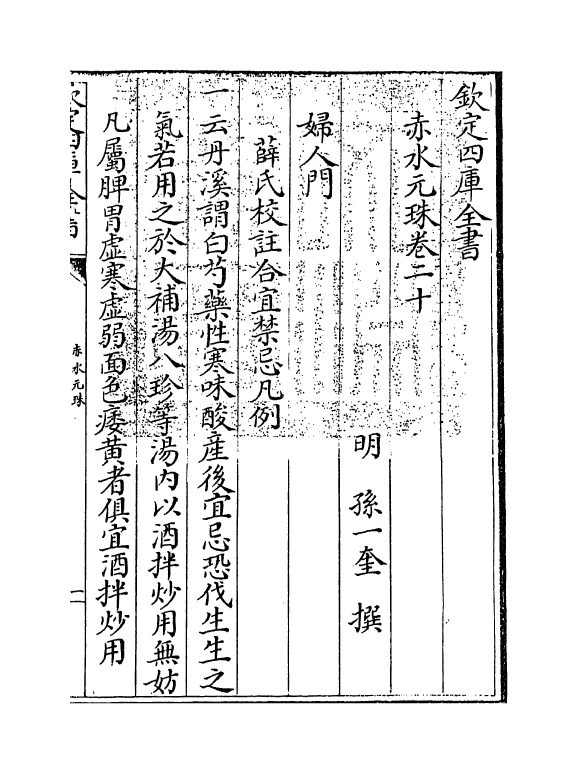 欽定四庫全書
赤水元珠卷二十
明 孫一奎 撰
婦人門
薛氏校註合宜禁忌凡例
一云丹溪謂白芍藥性寒味酸產後宜忌恐伐生生之
氣若用之於大補湯八珍等湯內以酒拌炒用無妨
凡屬脾胃虛寒虛弱面色痿黃者俱宜酒拌炒用
赤水元珠